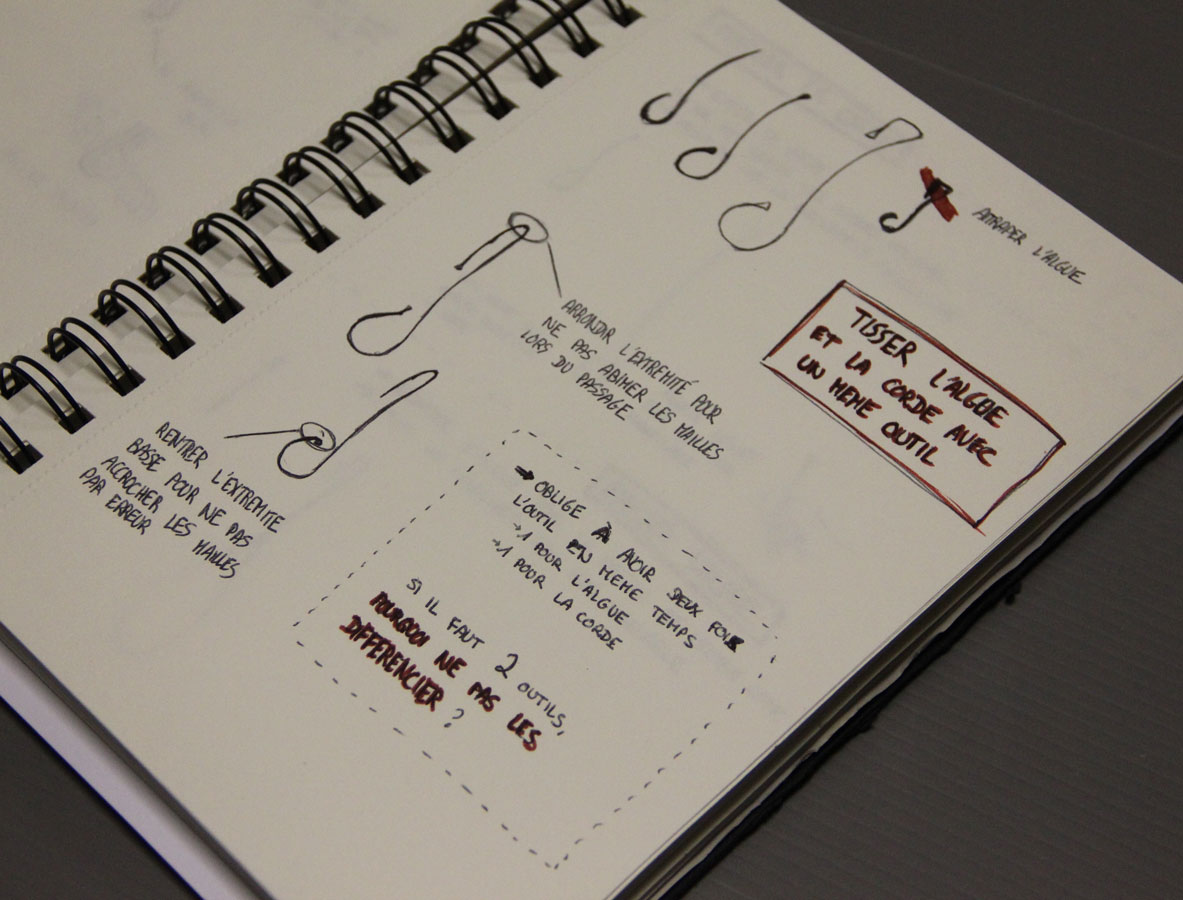 ATTRAPER L'ALGUE
TISSER L'ALGUE
ET LA CORDE AVEC
UN MEME OUTIL
ARRONDIR L'EXTREMITÉ POUR
NE PAS ABIMER LES MAILLES
LORS DU PASSAGE
RENTRER L'EXTREMITE
BASSE POUR NE PAS
ACCROCHER LES MAILLES
PAR ERREUR
→ OBLIGE À AVOIR DEUX FOIS
L'OUTIL EN MEME TEMPS
→ 1 POUR L'ALGUE
→ 1 POUR LA CORDE
SI IL FAUT 2 OUTILS,
POURQUOI NE PAS LES
DIFFERENCIER ?